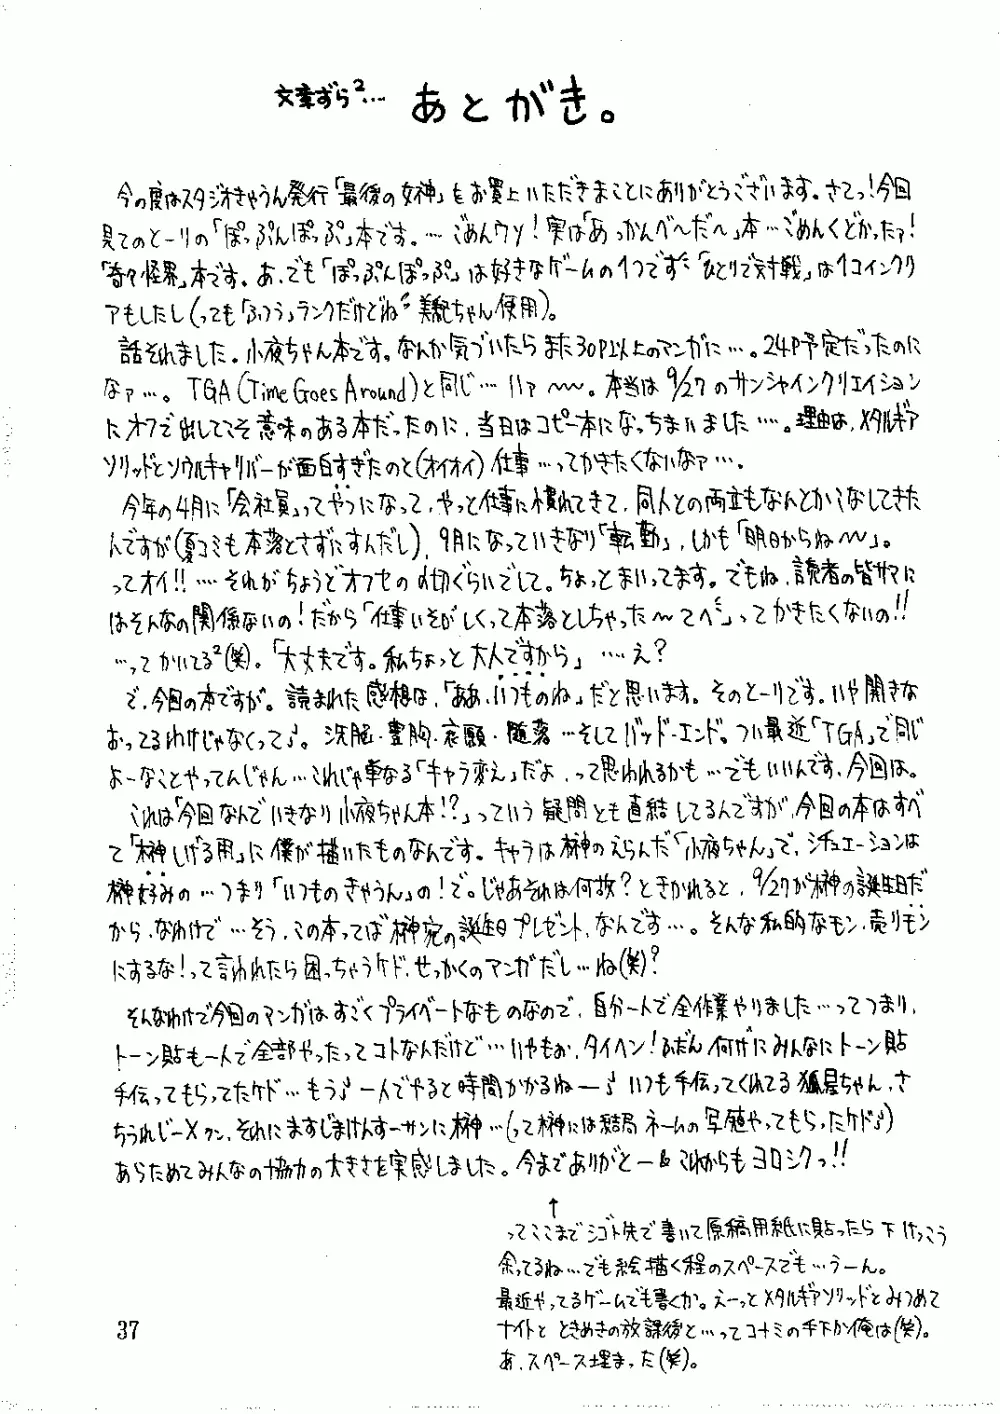 文章ずら²… あとがき。
今の度はスタジオきゃうん発行「最後の女神」をお買上いただきまことにありがとうございます。さてっ!今回
見てのとーりの「ぽっぷんぽっぷ」本です。…ごめんウソ!実は「あっかんべ〜だ〜」本…ごめんくどかったァ!
「奇々怪界」本です。あ、でも「ぽっぷんぽっぷ」は好きなゲームの1つです「ひとりで対戦」は1コインクリ
アもしたし(っても「ふつう」ランクだけどね 美紀ちゃん使用)。
話それました。小夜ちゃん本です。なんか気づいたらまた30P以上のマンガに…。24P予定だったのに
なァ…。TGA(Time Goes Around)と同じ…ハァ〜〜。本当は9/27のサンシャインクリエイション
にオフで出してこそ意味のある本だったのに、当日はコピー本になっちまいました…。理由は、メタルギア
ソリッドとソウルキャリバーが面白すぎたのと(オイオイ)仕事…ってかきたくないなァ…。
今年の4月に「会社員」ってやつになって、やっと仕事に慣れてきて、同人との両立もなんとかこなしてきた
んですが(夏コミも本落とさずにすんだし)、9月になっていきなり「転勤」、しかも「明日からね〜〜」。
ってオイ!!…それがちょうどオフセの〆切ぐらいでして。ちょっとまいってます。でもね、読者の皆サマに
はそんなの関係ないの!だから「仕事いそがしくって本落としちゃった〜てへ」ってかきたくないの!!
…ってかいてる²(笑)。「大丈夫です。私ちょっと大人ですから」…え?
で、今回の本ですが。読まれた感想は、「ああ、いつものね」だと思います。そのとーりです。いや開きな
おってるわけじゃなくって♪。洗脳・豊胸・哀願・堕落…そしてバッド・エンド。つい最近「TGA」で同じ
よーなことやってんじゃん…これじゃ単なる「キャラ変え」だよ、って思われるかも…でもいいんです、今回は。
これは「今回なんでいきなり小夜ちゃん本!?」っていう疑問とも直結してるんですが、今回の本はすべ
て「榊しげる用」に僕が描いたものなんです。キャラは榊のえらんだ「小夜ちゃん」で、シチュエーションは
榊好みの…つまり「いつものきゃうん」の!で。じゃあそれは何故?ときかれると、9/27が榊の誕生日だ
から、なわけで…そう、この本ってば榊宛の誕生日プレゼント、なんです…。そんな私的なモン、売りモン
にするな!って言われたら困っちゃうケド、せっかくのマンガだし…ね(笑)?
そんなわけで今回のマンガはすごくプライベートなものなので、自分一人で全作業やりました…ってつまり、
トーン貼も一人で全部やったってコトなんだけど…いやもぉ、タイヘン!ふだん何げにみんなにトーン貼
手伝ってもらってたケド…もう♪一人でやると時間かかるねー♪いつも手伝ってくれてる狐星ちゃん、さ
ちうれじーXクン、それにますじまけんすーサンに榊…(って榊には結局ネームの写植やってもらったケド♪)
あらためてみんなの協力の大きさを実感しました。今までありがとー&これからもヨロシクっ!!
↑
ってここまでシゴト先で書いて原稿用紙に貼ったら下けっこう
余ってるね…でも絵描く程のスペースでも…うーん。
最近やってるゲームでも書くか。えーっとメタルギアソリッドとみつめて
ナイトとときめきの放課後と…ってコナミの手下か俺は(笑)。
あ、スペース埋まった(笑)。
37